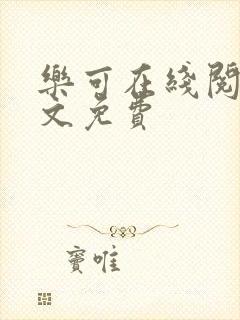 樂可在綫閱
文免費
竇唯